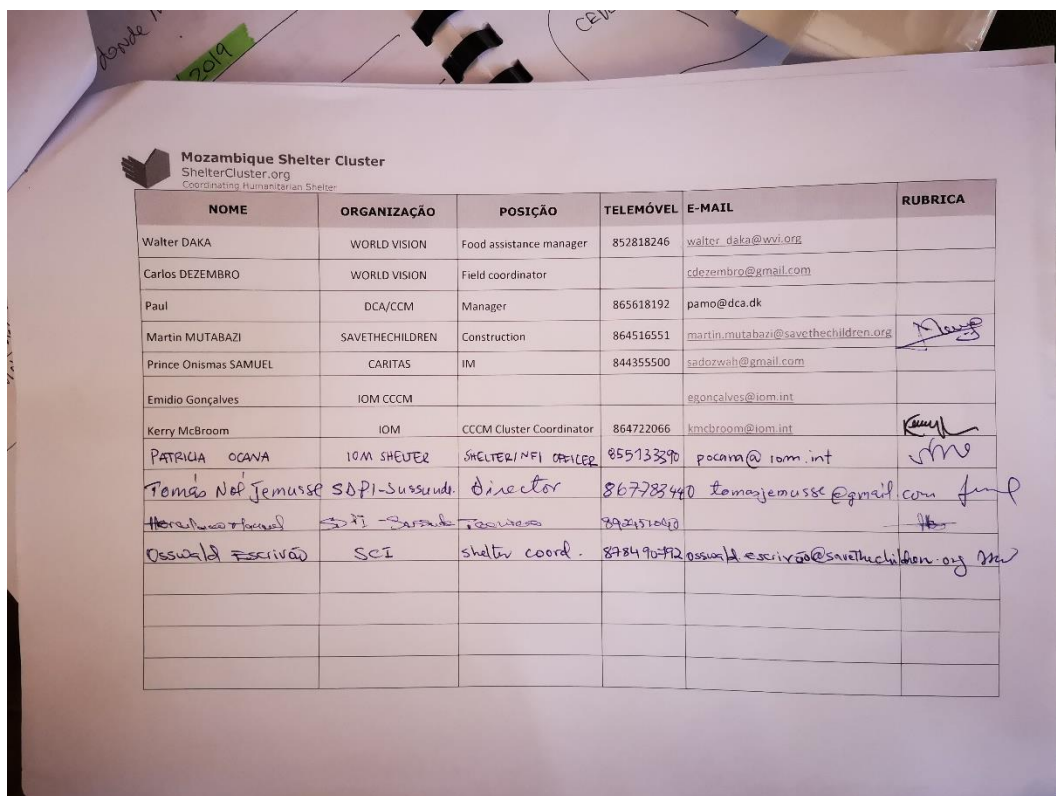 donde
2019
Mozambique Shelter Cluster
ShelterCluster.org
Coordinating Humanitarian Shelter
NOME ORGANIZAÇÃO POSIÇÃO TELEMÓVEL E-MAIL RUBRICA
Walter DAKA WORLD VISION Food assistance manager 852818246 walter_daka@wvi.org
Carlos DEZEMBRO WORLD VISION Field coordinator cdezembro@gmail.com
Paul DCA/CCM Manager 865618192 pamo@dca.dk
Martin MUTABAZI SAVETHECHILDREN Construction 864516551 martin.mutabazi@savethechildren.org
Prince Onismas SAMUEL CARITAS IM 844355500 sadozwah@gmail.com
Emidio Gonçalves IOM CCCM egonçalves@iom.int
Kerry McBroom IOM CCCM Cluster Coordinator 864722066 kmcbroom@iom.int
PATRICIA OCANA IOM SHELTER SHELTER/NFI OFFICER 855133390 pocana@iom.int
Tomás Noé Jemusse SDPI-Sussunde. Director 867783440 tomasjemusse@gmail.com
Tecnico
Osswald Escrivão SCI shelter coord. 878490792 osswald.escrivão@savethechildren.org